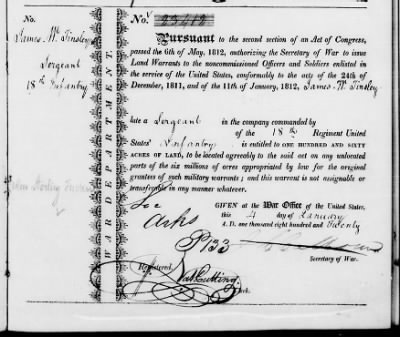 No.
James W. Tinsley
Sergeant
18th Infantry
WAR DEPARTMENT.
No. 23412
Pursuant to the second section of an Act of Congress,
passed the 6th of May, 1812, authorizing the Secretary of War to issue
Land Warrants to the noncommissioned Officers and Soldiers enlisted in
the service of the United States, conformably to the acts of the 24th of
December, 1811, and of the 11th of January, 1812, James W. Tinsley
late a Sergeant in the company commanded by
of the 18th Regiment United
States' Infantry is entitled to ONE HUNDRED AND SIXTY
ACRES OF LAND, to be located agreeably to the said act on any unlocated
parts of the six millions of acres appropriated by law for the original
grantees of such military warrants; and this warrant is not assignable or
transferable in any manner whatever.
GIVEN at the War Office of the United States,
this 4 day of January
A. D. one thousand eight hundred and twenty
Loc
Arks
P 133
Secretary of War.
Registered,
Nat Cutting
Clerk.